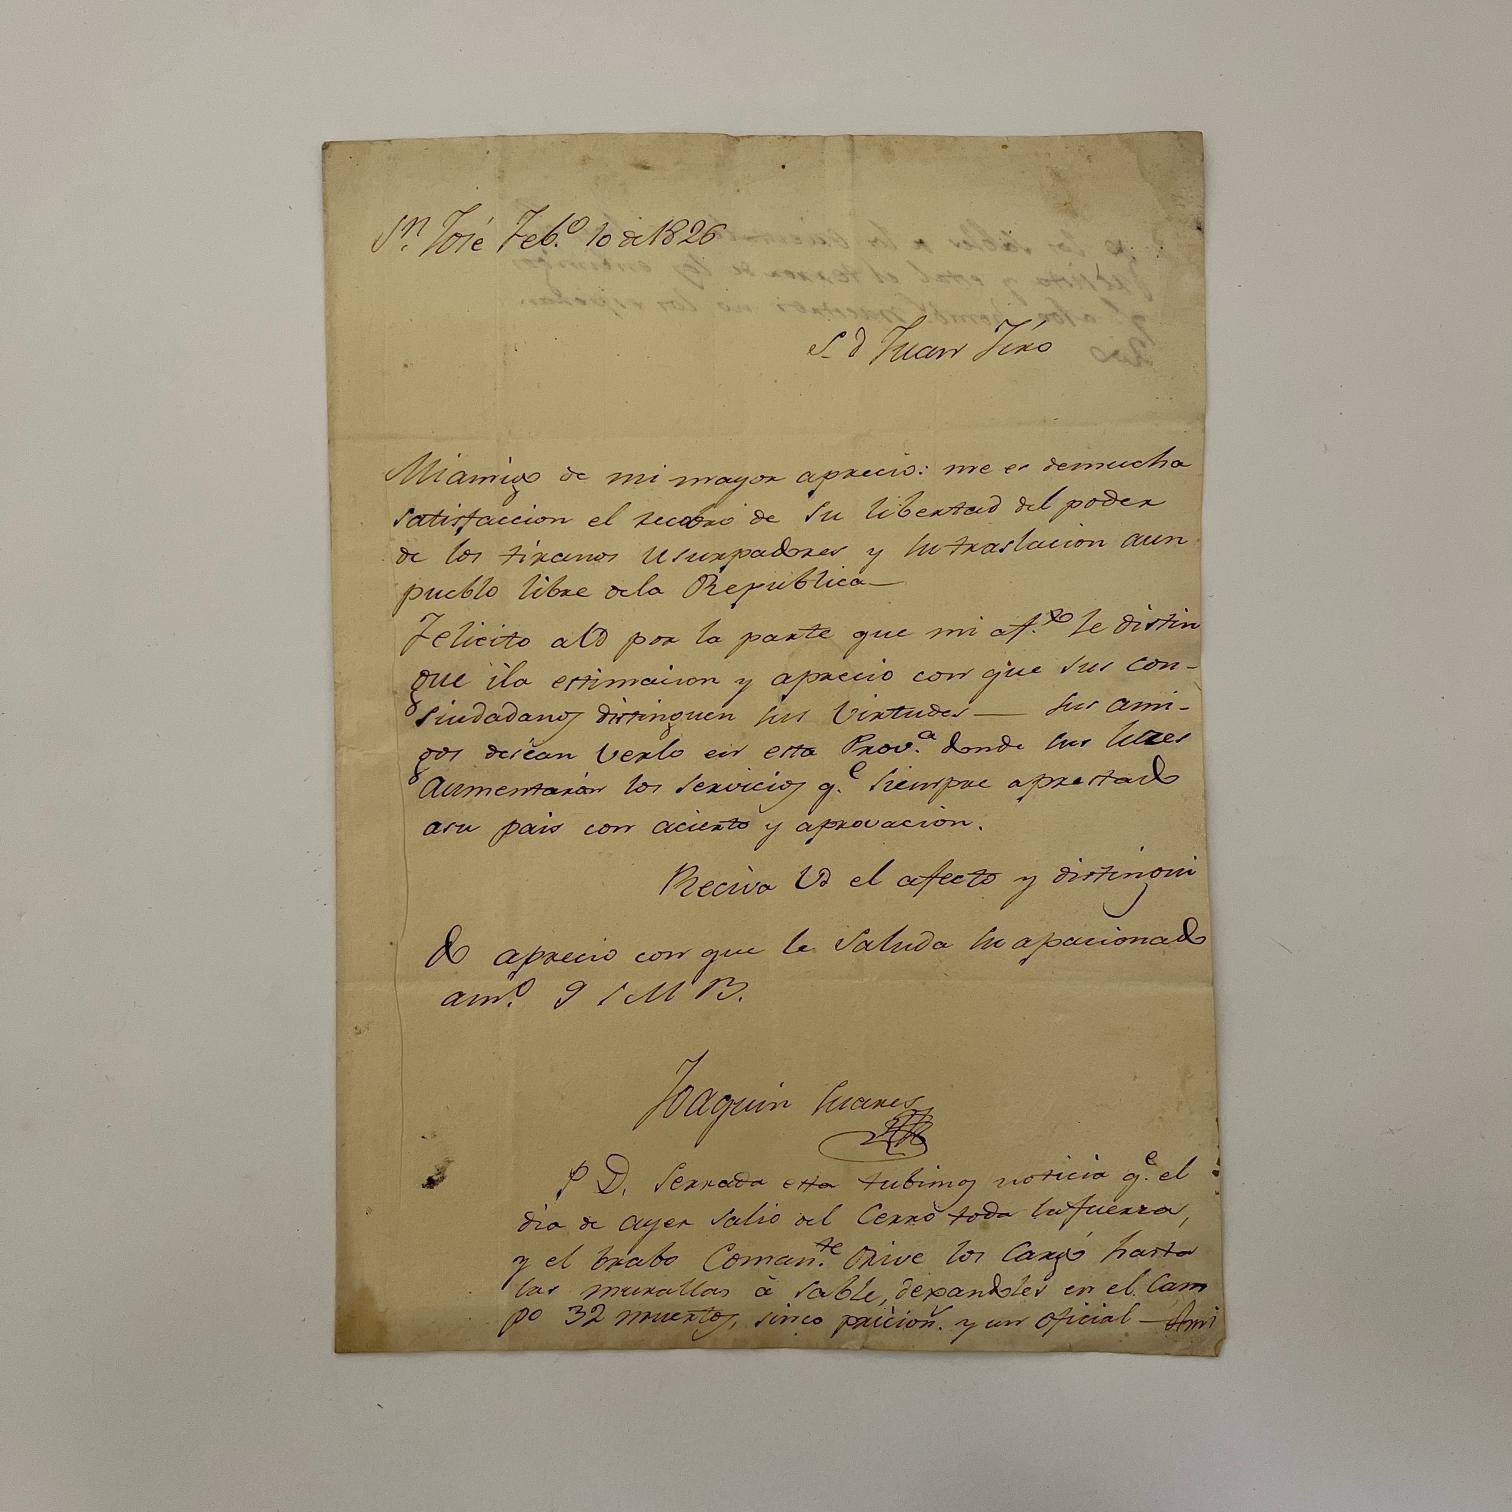 Sn. José Feb.o 10 de 1826
S. d Juan Jiró
Mi amigo de mi mayor aprecio: me es demucha
satisfaccion el recobro de su libertad del poder
de los tiranos usurpadores y su traslacion aun
pueblo libre dela Republica—
Felicito a Ud por la parte que mi af.to le distin
gue ila estimacion y aprecio con que sus con-
siudadanos distinguen sus virtudes — sus ami-
gos desean verlo en esta Prov.a donde sus luces
aumentarán los servicios q.e siempre aprestado
asu pais con acierto y aprovacion.
Reciva Vd el afecto y distingui
do aprecio con que le saluda su apacionado
am.o Q S M B.
Joaquin Suares
P D. Serrada esta tubimos noticia q.e el
dia de ayer salio del Cerro toda la fuerza,
y el brabo Coman.te Orive los cargó hasta
las murallas á sable, dexandoles en el Cam
po 32 muertos, sinco pricion.s y un oficial —